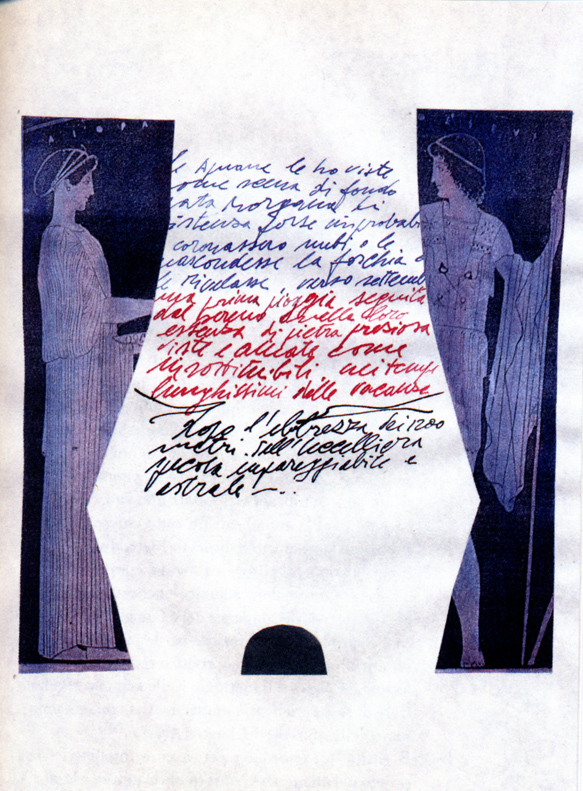 le Apuane le ho viste
ome scena di fondo
ata Morgana di
istenza forse improbabi
coronassero nubi o le
nascondesse la foschia o
le rigelasse verso settemb
una prima pioggia seguita
dal sereno quella loro
essenza di pietra preziosa
viste e amate come
insostituibili nei tempi
lunghissimi delle vacanze
Dopo l'ebbrezza dei 1200
metri dell'uccelliera
piccola impareggiabile e
astrale